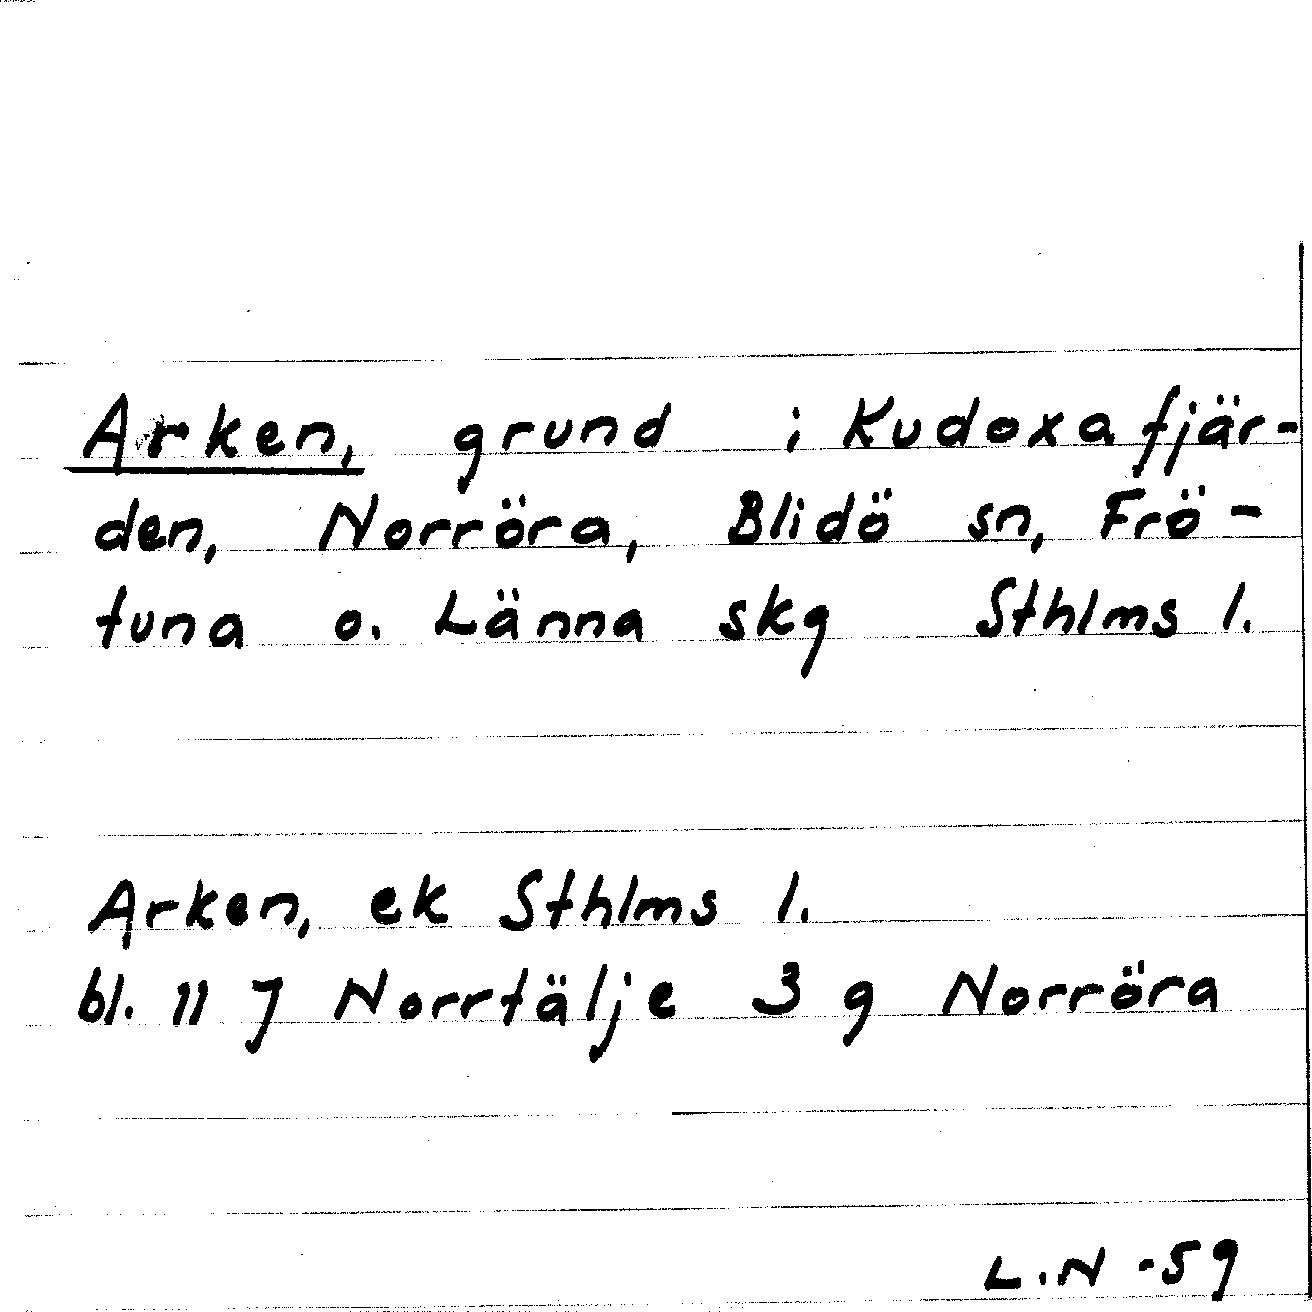 Arken, grund i Kudoxafjär-
den, Norröra, Blidö sn, Frö-
tuna o. Länna skg Sthlms l.
Arken, ek Sthlms l.
bl. 11 J Norrtälje 3 g Norröra
L.N -59